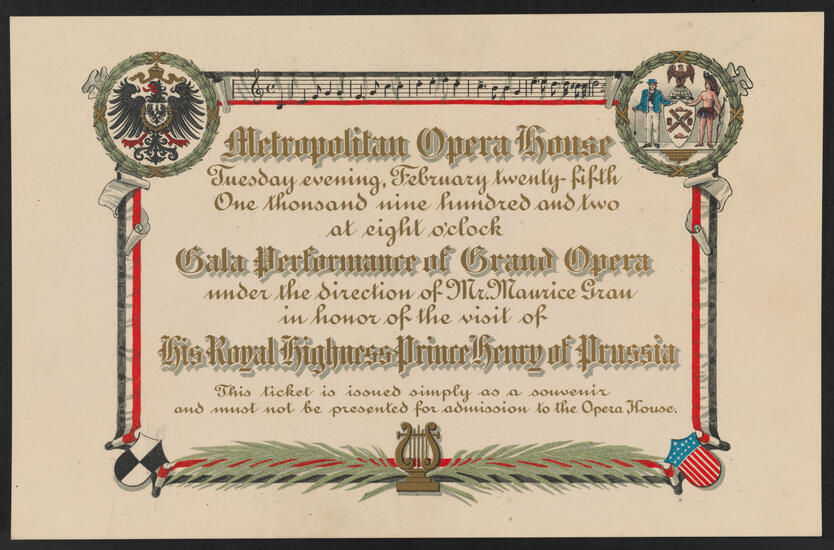 Metropolitan Opera House
Tuesday evening, February twenty-fifth
One thousand nine hundred and two
at eight o'clock
Gala Performance of Grand Opera
under the direction of Mr. Maurice Grau
in honor of the visit of
His Royal Highness Prince Henry of Prussia
This ticket is issued simply as a souvenir
and must not be presented for admission to the Opera House.